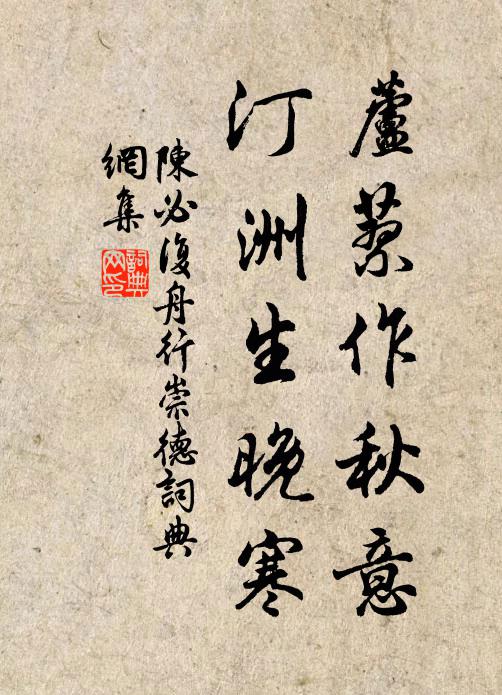 蘆葦作秋意
汀洲生晚寒
陳必復舟行崇德詞典
網集
詞典
网印